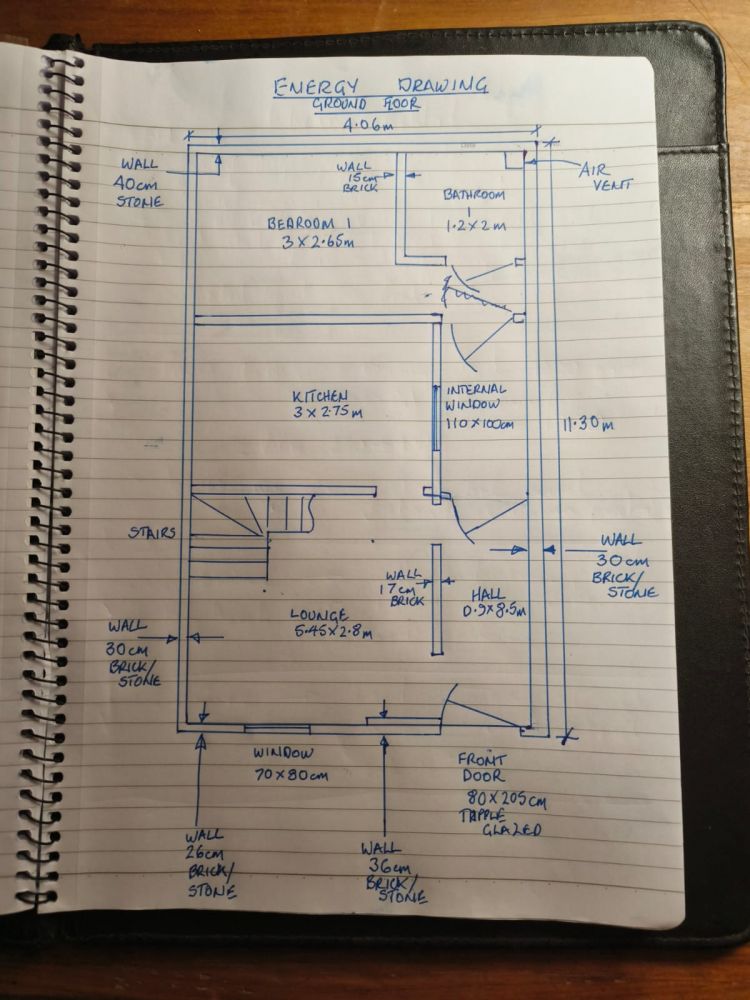 ENERGY DRAWING
GROUND FLOOR
4.06m
WALL
40cm
STONE
WALL
15cm
BRICK
AIR
VENT
BATHROOM
1
1.2 X 2m
BEDROOM 1
3 X 2.65m
KITCHEN
3 X 2.75m
INTERNAL
WINDOW
110 X 100cm
11.30m
STAIRS
WALL
30cm
BRICK/
STONE
WALL
17cm
BRICK
HALL
0.9X8.5m
LOUNGE
5.45X2.8m
WALL
30cm
BRICK/
STONE
WINDOW
70X80cm
FRONT
DOOR
80X205cm
TRIPLE
GLAZED
WALL
26cm
BRICK/
STONE
WALL
36cm
BRICK/
STONE